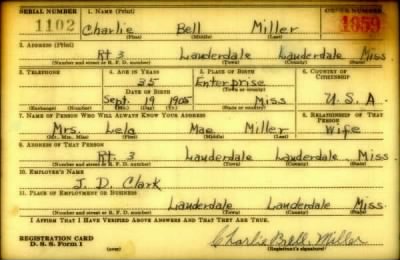 SERIAL NUMBER 1. NAME (Print) ORDER NUMBER
1102 Charlie Bell Miller 1859
(First) (Middle) (Last)
2. ADDRESS (Print)
Rt 3 Lauderdale Lauderdale Miss
(Number and street or R. F. D. number) (Town) (County) (State)
3. TELEPHONE 4. AGE IN YEARS 5. PLACE OF BIRTH 6. COUNTRY OF CITIZENSHIP
35 Enterprise
DATE OF BIRTH (Town or county)
Sept. 19 1905 Miss U.S.A.
(Exchange) (Number) (Mo.) (Day) (Yr.) (State or country)
7. NAME OF PERSON WHO WILL ALWAYS KNOW YOUR ADDRESS 8. RELATIONSHIP OF THAT PERSON
Mrs. Lela Mae Miller Wife
(Mr., Mrs., Miss) (First) (Middle) (Last)
9. ADDRESS OF THAT PERSON
Rt. 3 Lauderdale Lauderdale Miss
(Number and street or R. F. D. number) (Town) (County) (State)
10. EMPLOYER'S NAME
J. D. Clark
11. PLACE OF EMPLOYMENT OR BUSINESS
Lauderdale Lauderdale Miss
(Number and street or R. F. D. number) (Town) (County) (State)
I AFFIRM THAT I HAVE VERIFIED ABOVE ANSWERS AND THAT THEY ARE TRUE.
REGISTRATION CARD
D. S. S. Form 1 (over) Charlie Bell Miller
(Registrant's signature)